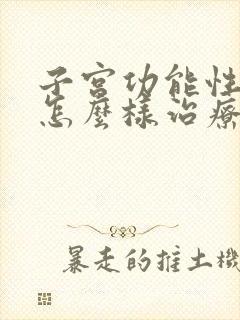 子宮功能性
怎麼樣治療
暴走的推土機